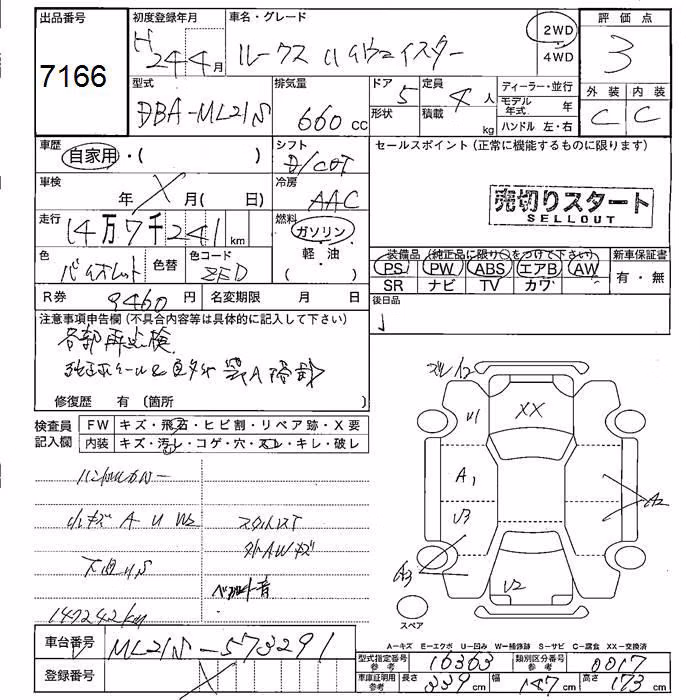 出品番号 初度登録年月 車名・グレード 評価点
7166 H 24 4月 ルークス ハイウェイスター 2WD 4WD 3
型式 排気量 ドア 形状 定員 積載 ディーラー・並行 外装 内装
DBA-ML21S 660 cc 5 4人 kg モデル年式 年 ハンドル 左・右 C C
車歴 自家用・( ) シフト D/CVT セールスポイント(正常に機能するものに限ります)
車検 年 月( 日) 冷房 AAC 売切りスタート
SELLOUT
走行 14万7千241km 燃料 ガソリン
(軽・油)
色 バイオレット 色替 色コード ZED
装備品(純正品に限り○をつけて下さい) 新車保証書
PS PW ABS エアB AW 有・無
SR ナビ TV カワ
R券 9460円 名変期限 月 日 後日品
注意事項申告欄(不具合内容等は具体的に記入して下さい)
各部再点検
修復歴 有(箇所 )
検査員記入欄 FW キズ・飛石・ヒビ割・リペア跡・X要
内装 キズ・汚レ・コゲ・穴・スレ・キレ・破レ
小キズ A U W2
スタッドレス
外AWキズ
下廻りS
ベルト音
147242km
ズレ12
U1 XX
A1 A2
U3
A3
U2
スペア
A−キズ E−エクボ U−凹み W−補修跡 S−サビ C−腐食 XX−交換済
車台番号 ML21S-573291
登録番号
型式指定番号 参考 16363 類別区分番号 参考 0017
車庫証明用 参考 長さ 339cm 幅 147cm 高さ 173cm